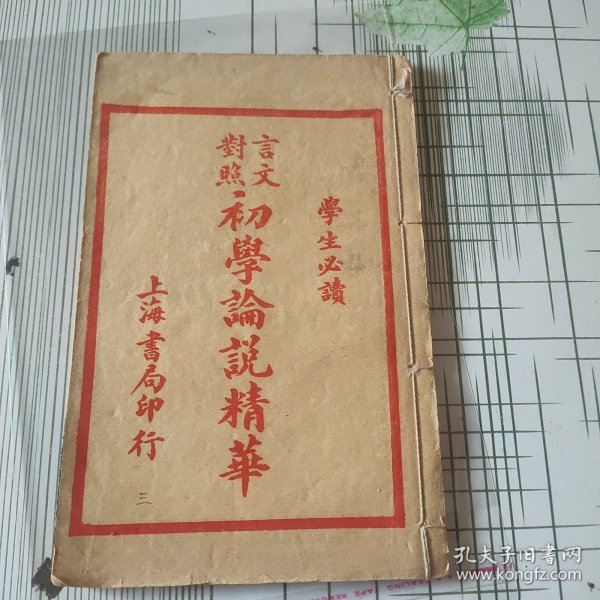 學生必讀
言文
對照
初學論説精華
上海書局印行
三
孔夫子旧书网
www.kongfz.com